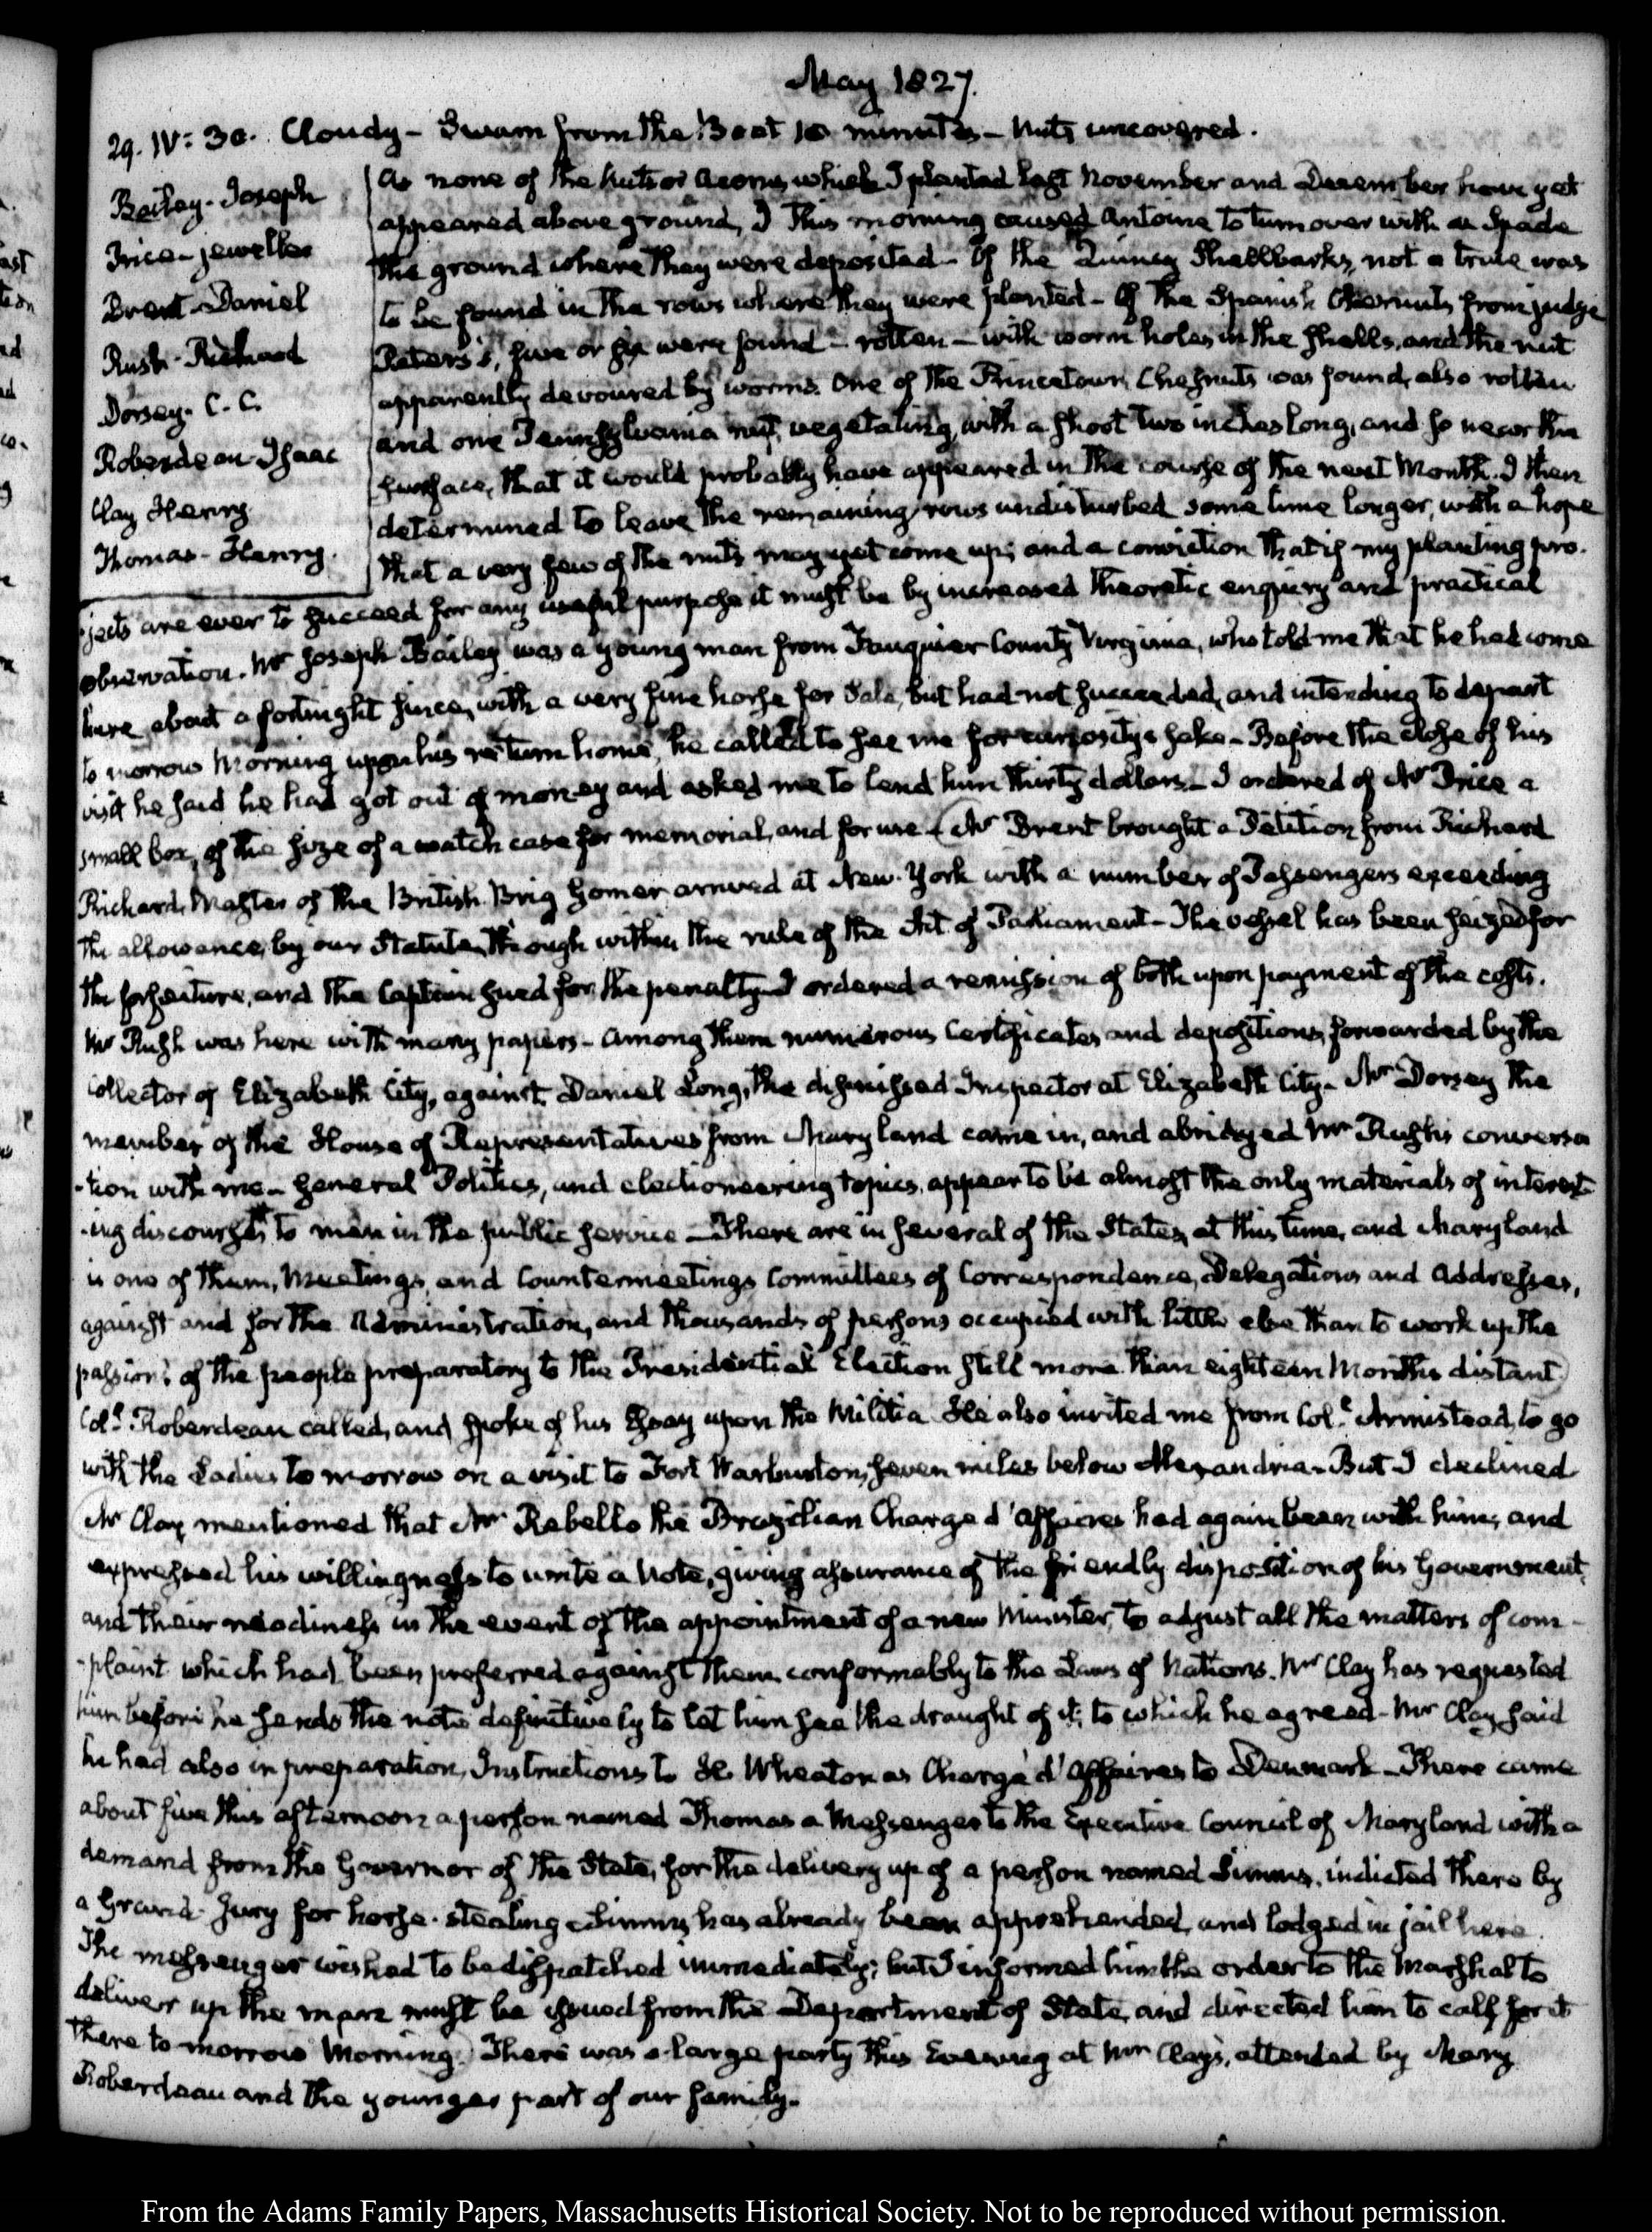 May 1827.
29. IV: 30. Cloudy - Swam from the Boat 16 minutes - Nuts uncovered.
Bailey - Joseph
Price - jeweller
Brent - Daniel
Rush - Richard
Dorsey - C. C.
Roberdeau Isaac
Clay Henry
Thomas - Henry.
As none of the Nuts or Acorns which I planted last November and December have yet
appeared above ground, I this morning caused Antoine to turn over with a Spade
the ground where they were deposited - Of the Quincy Shellbarks, not a trace was
to be found in the rows where they were planted - Of the Spanish Chesnuts from judge
Peters's, five or six were found - rotten - with worm holes in the shells, and the nut
apparently devoured by worms. One of the Princetown Chesnuts was found, also rotten
and one Pennsylvania nut, vegetating, with a shoot two inches long, and so near the
surface, that it would probably have appeared in the course of the next Month. I then
determined to leave the remaining rows undisturbed some time longer, with a hope
that a very few of the nuts may yet come up; and a conviction that if my planting pro-
-jects are ever to succeed for any useful purpose it must be by increased theoretic enquiry and practical
observation. Mr Joseph Bailey was a young man from Fauquier County Virginia, who told me that he had come
here about a fortnight since, with a very fine horse for Sale, but had not succeeded, and intending to depart
to morrow Morning upon his return home, he called to see me for curiosity's sake - Before the close of his
visit he said he had got out of money and asked me to lend him thirty dollars - I ordered of Mr Price a
small box, of the size of a watch case for memorial, and for use. (Mr Brent brought a Petition from Richard
Richard, Master of the British Brig Homer arrived at New-York with a number of Passengers exceeding
the allowance, by our Statute, though within the rule of the Act of Parliament - The vessel has been seized for
the forfeiture, and the Captain sued for the penalty - I ordered a remission of both upon payment of the costs.
Mr Rush was here with many papers - Among them numerous Certificates and depositions, forwarded by the
Collector of Elizabeth City, against Daniel Long, the dismissed Inspector at Elizabeth City - Mr Dorsey the
member of the House of Representatives from Maryland came in, and abridged Mr Rush's conversa
-tion with me - General Politics, and electioneering topics, appear to be almost the only materials of interest-
-ing discourse to men in the public service - There are in several of the States, at this time, and Maryland
is one of them, Meetings, and Countermeetings Committees of Correspondence, Delegations and Addresses,
against and for the Administration, and thousands of persons occupied with little else than to work up the
passions of the people preparatory to the Presidential Election still more than eighteen Months distant)
Coll. Roberdeau called, and spoke of his Essay upon the Militia. He also invited me from Coll. Armistead, to go
with the Ladies to morrow on a visit to Fort Warburton, seven miles below Alexandria - But I declined
(Mr Clay mentioned that Mr Rebello the Brazilian Chargé d'Affaires had again been with him, and
expressed his willingness to write a Note, giving assurance of the friendly disposition of his Government,
and their readiness in the event of the appointment of a new Minister, to adjust all the matters of com-
-plaint which had been preferred against them conformably to the Laws of Nations. Mr Clay has requested
him before he sends the note definitively to let him see the draught of it, to which he agreed - Mr Clay said
he had also in preparation, Instructions to H. Wheaton as Chargé d'Affaires to Denmark - There came
about five this afternoon a person named Thomas a Messenger to the Executive Council of Maryland with a
demand from the Governor of the State, for the delivery up of a person named Simms, indicted there by
a Grand-Jury for horse-stealing - Simms has already been apprehended, and lodged in jail here.
The messenger wished to be dispatched immediately; but I informed him the order to the Marshal to
deliver up the man must be issued from the Department of State, and directed him to call for it
there to-morrow Morning.) There was a large party this Evening at Mr Clay's, attended by Mary
Roberdeau and the younger part of our family.
From the Adams Family Papers, Massachusetts Historical Society. Not to be reproduced without permission.